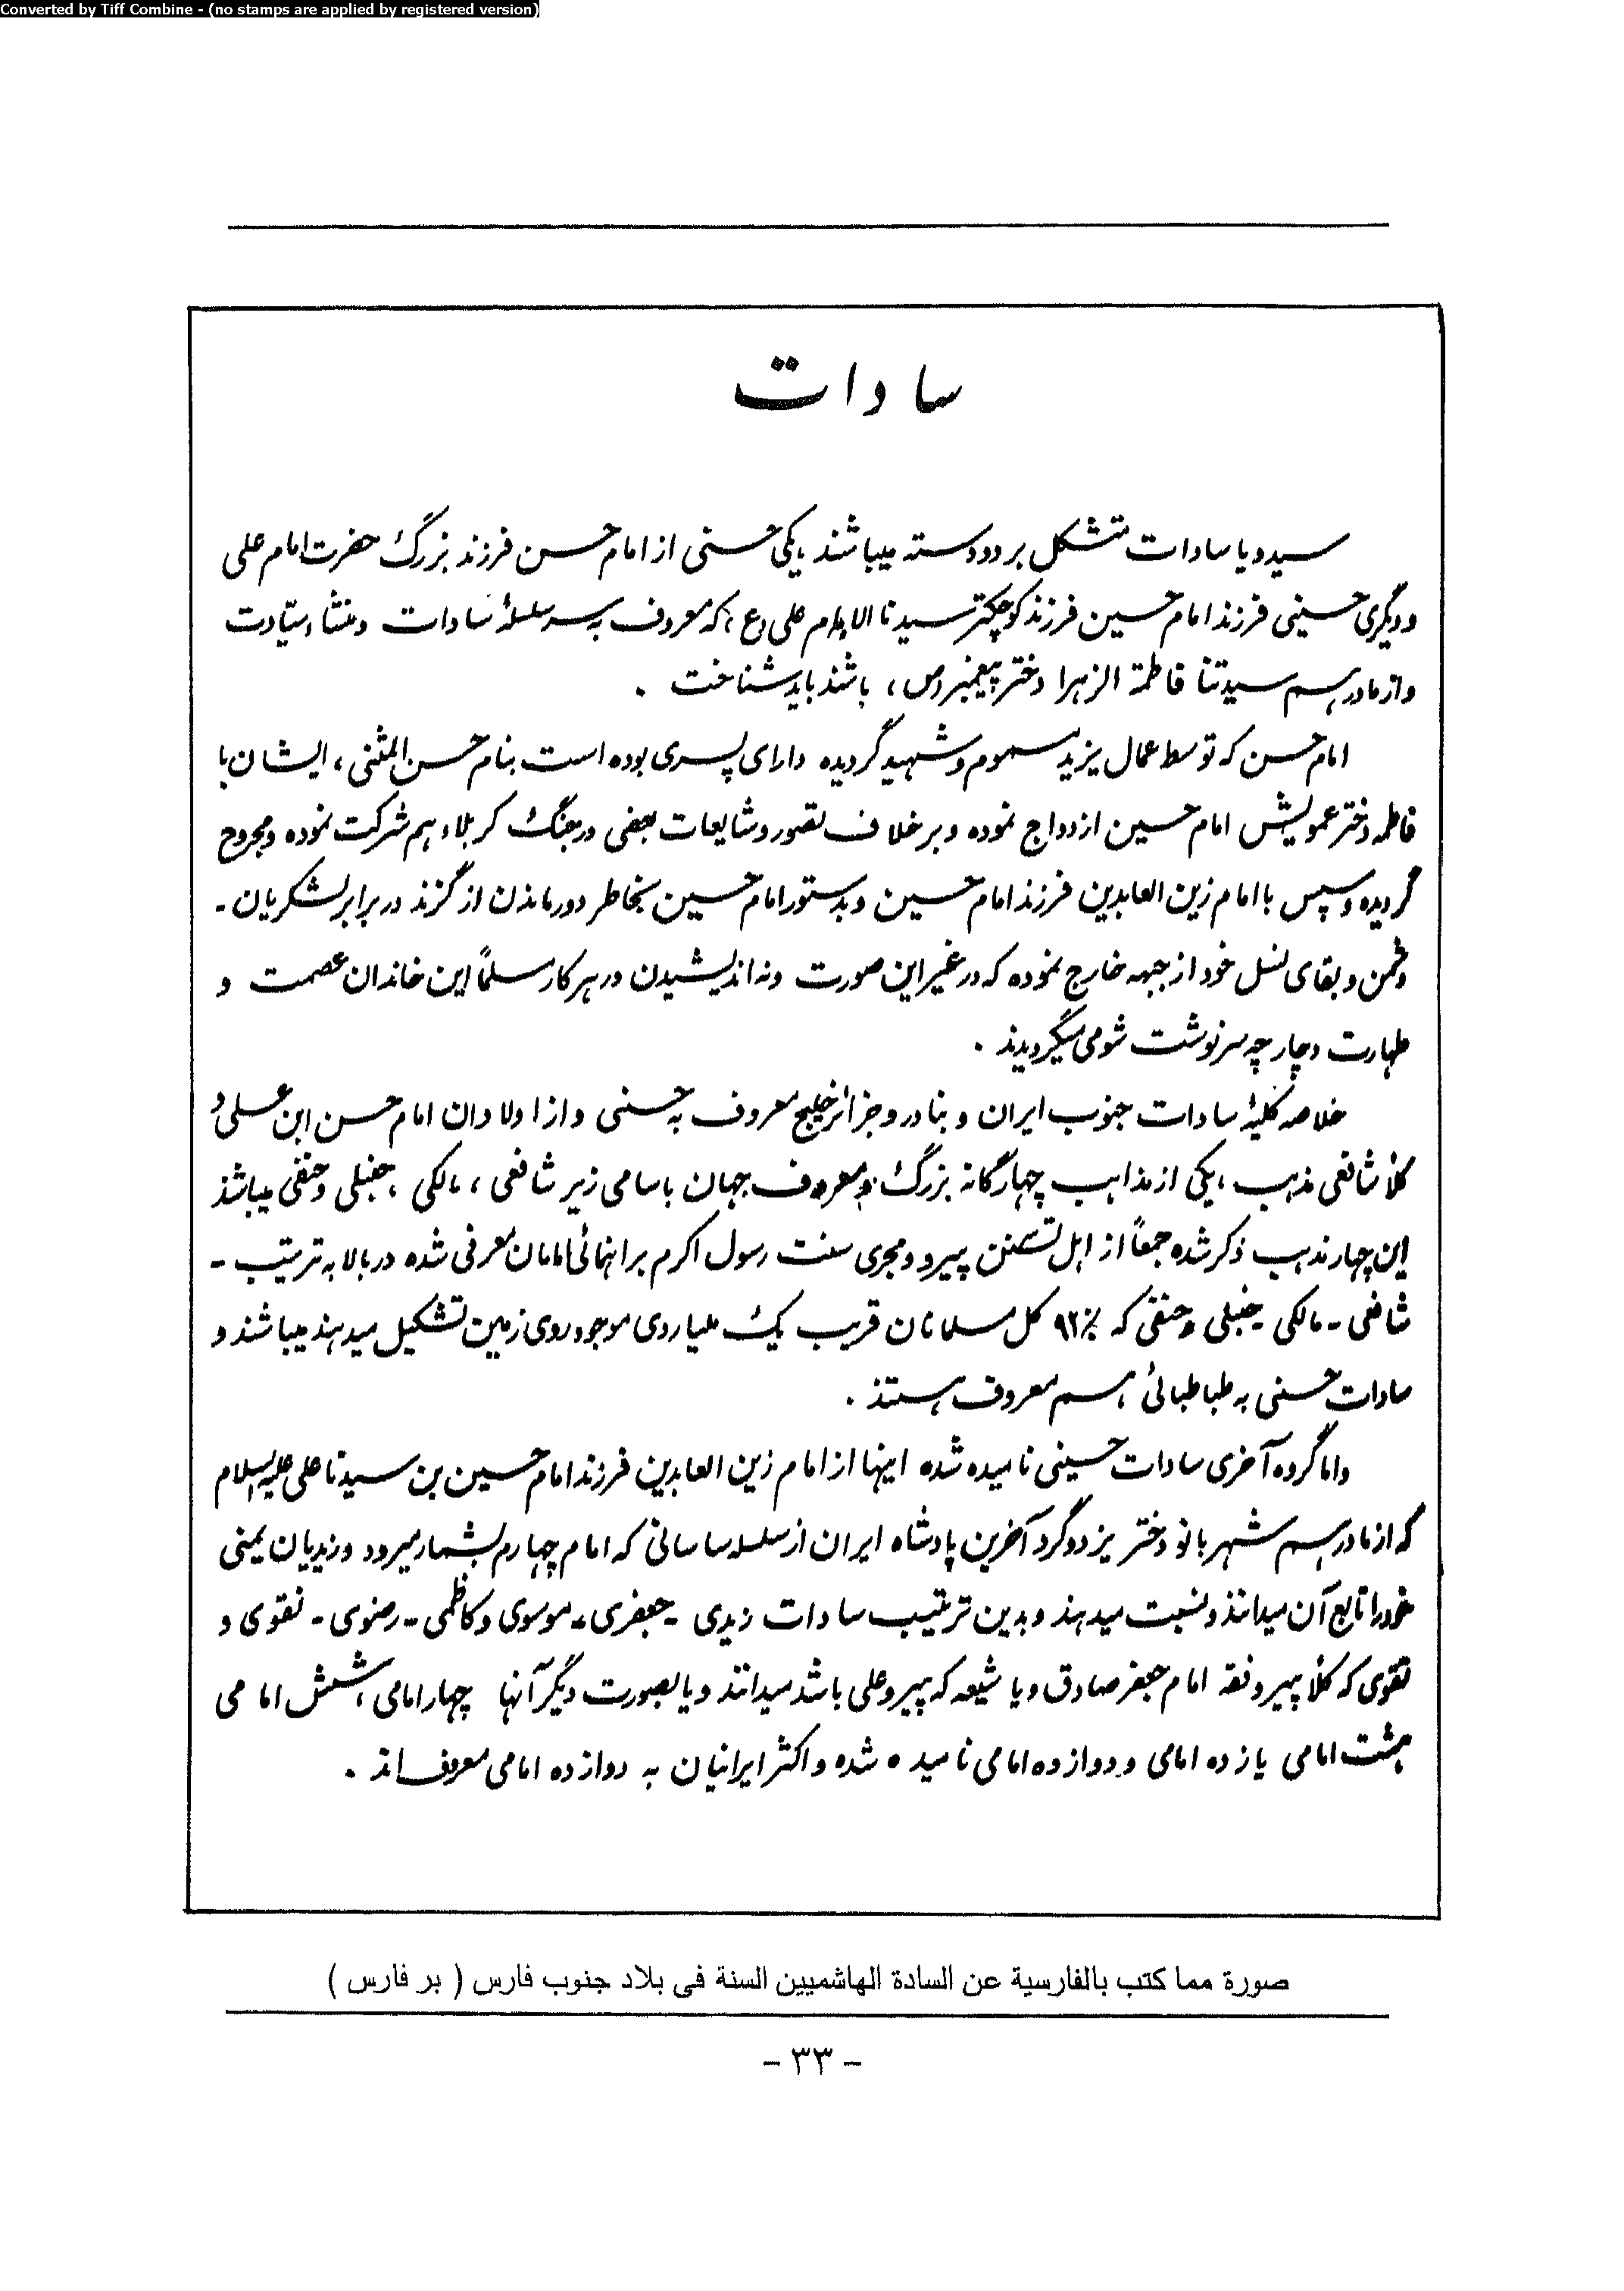 Converted by Tiff Combine - (no stamps are applied by registered version)
سادات
سید و یا سادات متشکل بر دو دسته میباشند یکی حسنی از امام حسن فرزند بزرگ حضرت امام علی
و دیگری حسینی فرزند امام حسین فرزند کوچکتر سیدنا الامام علی (ع) که معروف به سرسلسلهٔ سادات و منشاء سیّادت
و از مادر هم سیدتنا فاطمة الزهرا دختر پیغمبر (ص) ، باشند باید شناخت .
امام حسن که توسط عمال یزید مسموم و شهید گردیده دارای پسری بوده است بنام حسن المثنی ، ایشان با
فاطمه دختر عمویش امام حسین ازدواج نموده و برخلاف تصور و شایعات بعضی در جنگ کربلاء هم شرکت نموده و مجروح
گردیده و سپس با امام زین العابدین فرزند امام حسین و بدستور امام حسین بخاطر دور ماندن از گزند در برابر لشکریان -
دشمن و بقای نسل خود از جبهه خارج نموده که در غیر این صورت و نه اندیشیدن در هر کار مسلماً این خاندان عصمت و
طهارت دچار چه سرنوشت شومی میگردیدند .
خلاصه کلیهٔ سادات جنوب ایران و بنادر و جزائر خلیج معروف به حسنی و از اولادان امام حسن ابن علی و
کلاً شافعی مذهب ، یکی از مذاهب چهارگانه بزرگ و معروف جهان باسامی زیر شافعی ، مالکی ، حنبلی و حنفی میباشند
این چهار مذهب ذکر شده جمعاً از اهل تسنن پیرو و مجری سنت رسول اکرم براهنمائی امامان معرفی شده در بالا به ترتیب -
شافعی - مالکی - حنبلی و حنفی که ۹۲٪ کل مسلمانان قریب یک ملیاردی موجود روی زمین تشکیل میدهند میباشند و
سادات حسنی به طباطبائی هم معروف هستند .
و اما گروه آخری سادات حسینی نامیده شده اینها از امام زین العابدین فرزند امام حسین بن سیدنا علی علیه السلام
که از مادر هم شهربانو دختر یزدوگرد آخرین پادشاه ایران از سلسله ساسانی که امام چهارم بشمار میرود و زیدیان یمنی
خود را تابع آن میدانند و نسبت میدهند و بدین ترتیب سادات زیدی - جعفری - موسوی و کاظمی - رضوی - نقوی و
تقوی که کلاً پیرو فقه امام جعفر صادق و یا شیعه که پیرو علی باشد میدانند و یا بصورت دیگر آنها چهار امامی ، شش امامی
هشت امامی یازده امامی و دوازده امامی نامیده شده و اکثر ایرانیان به دوازده امامی معروف اند .
صورة مما كتب بالفارسية عن السادة الهاشميين السنة في بلاد جنوب فارس ( بر فارس )
- ٣٣ -